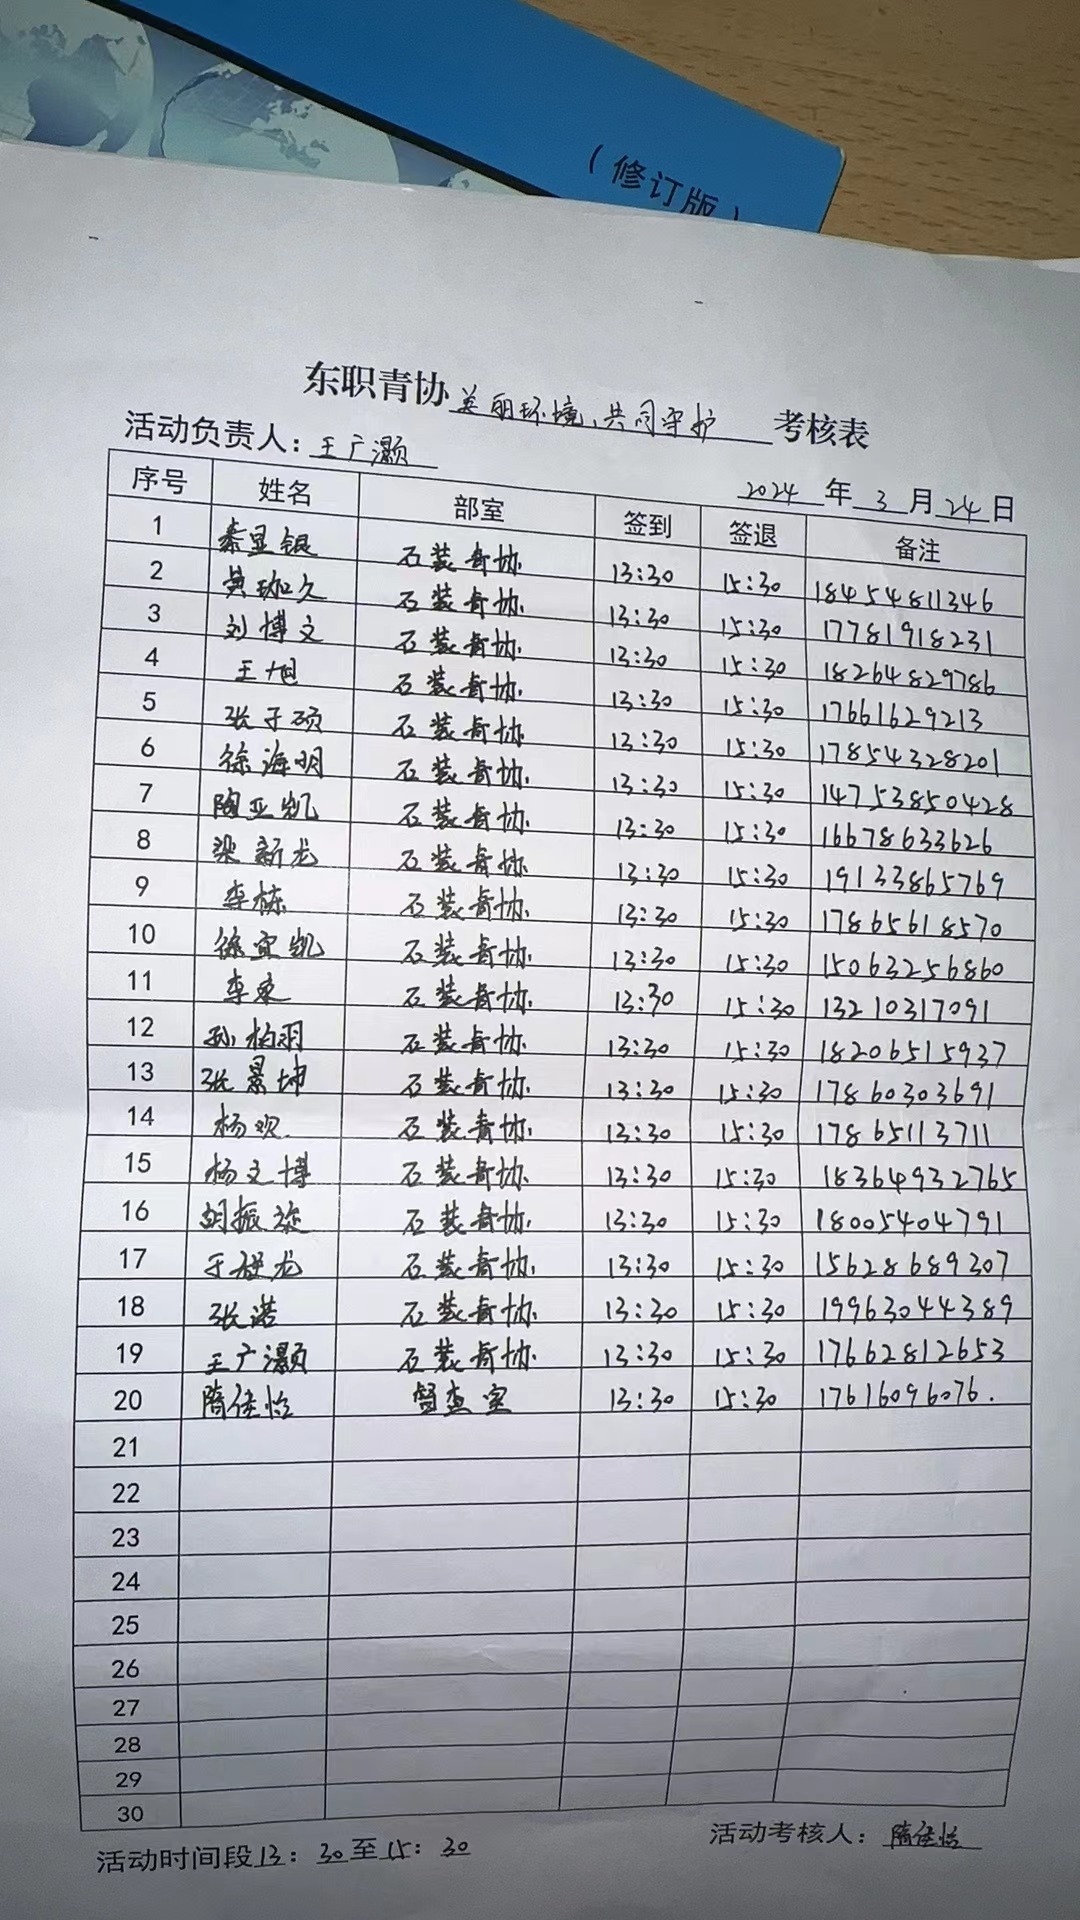 (修订版)
东职青协美丽环境、共同守护考核表
活动负责人:王广灏
2024年3月24日
序号 姓名 部室 签到 签退 备注
1 秦显银 石装青协 13:30 15:30 18454811346
2 黄珈久 石装青协 13:30 15:30 17781918231
3 刘博文 石装青协 13:30 15:30 18264829786
4 王旭 石装青协 13:30 15:30 17661629213
5 张子硕 石装青协 13:30 15:30 17854328201
6 徐海明 石装青协 13:30 15:30 14753850428
7 陶亚凯 石装青协 13:30 15:30 16678633626
8 梁新龙 石装青协 13:30 15:30 19133865769
9 李栋 石装青协 13:30 15:30 17865618570
10 徐宜凯 石装青协 13:30 15:30 15063256860
11 李东 石装青协 13:30 15:30 13210317091
12 孙柏羽 石装青协 13:30 15:30 18206515937
13 张景坤 石装青协 13:30 15:30 17860303691
14 杨欢 石装青协 13:30 15:30 17865113711
15 杨文博 石装青协 13:30 15:30 18364932765
16 胡振 石装青协 13:30 15:30 18005404791
17 于 龙 石装青协 13:30 15:30 15628689307
18 张诺 石装青协 13:30 15:30 19963044389
19 王广灏 石装青协 13:30 15:30 17662812653
20 隋佳怡 督查室 13:30 15:30 17616096076.
21
22
23
24
25
26
27
28
29
30
活动时间段13:30至15:30 活动考核人:隋佳怡